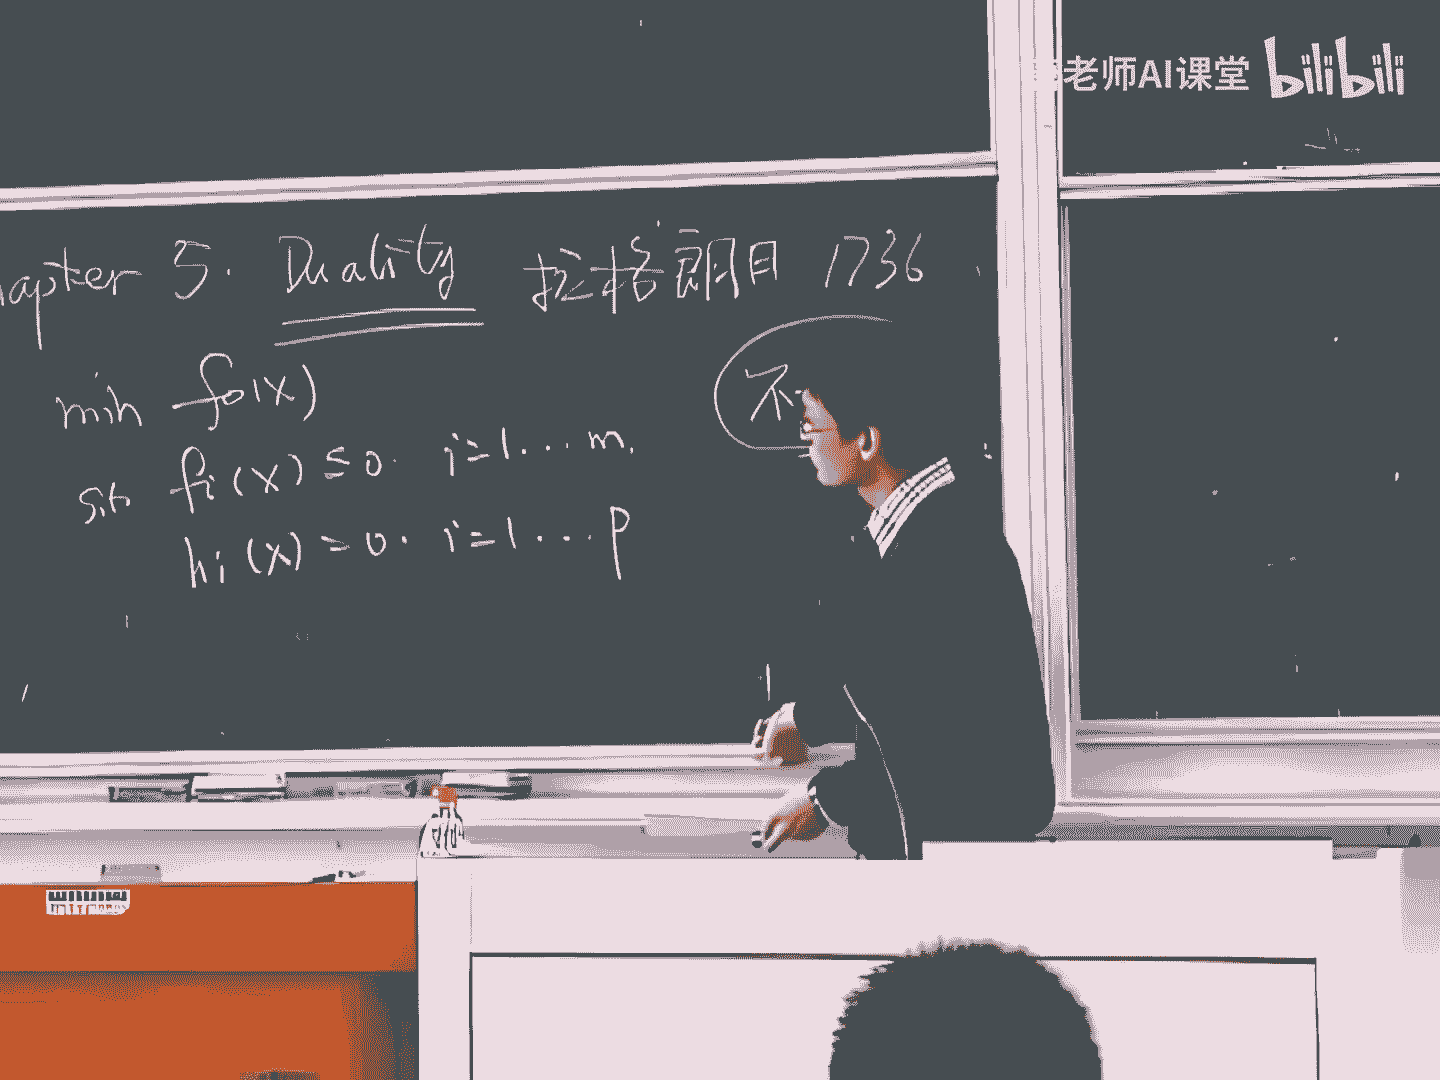 老师AI课堂 bilibili
hapter 5. Duality 拉格朗日 1736
min f0(x)
s.t. fi(x) ≤ 0. i=1...m.
hi(x) = 0. i=1...p
不